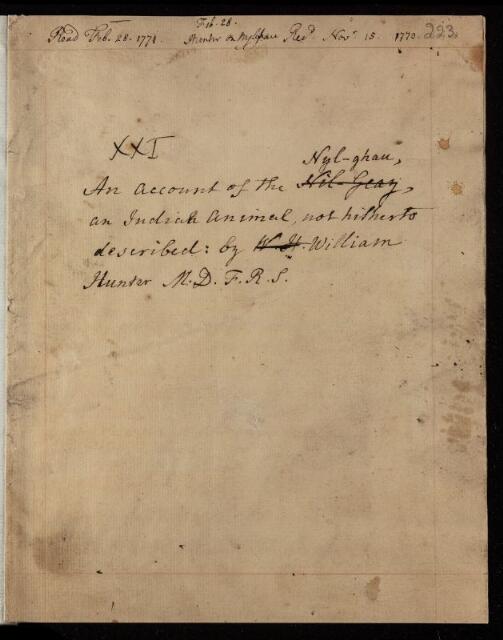 Feb. 28.
Read Feb. 28. 1771. Hunter on Nylghau Recd. Novr. 15. 1770. 223
XXI
Nyl-ghau,
An account of the Nil-Geay,
an Indian animal, not hitherto
described: by W. H. William
Hunter M.D. F.R.S.